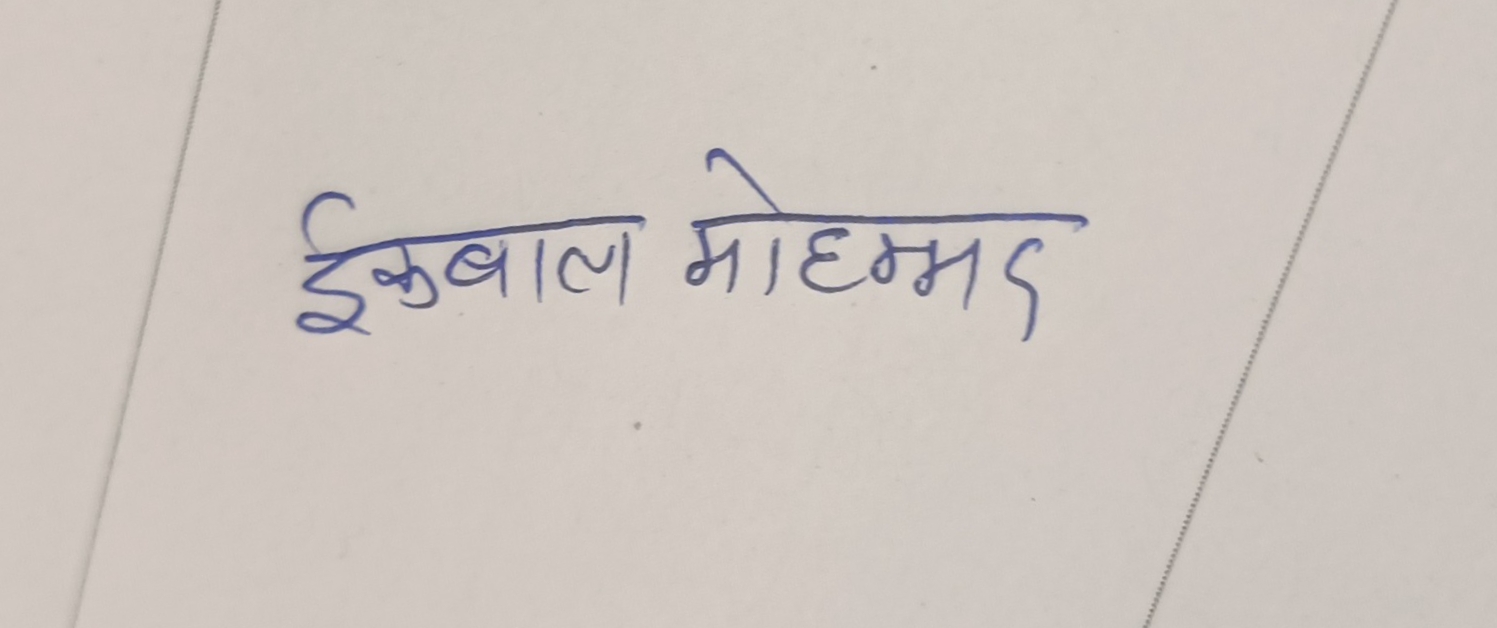 ईकबाल मोहम्मद